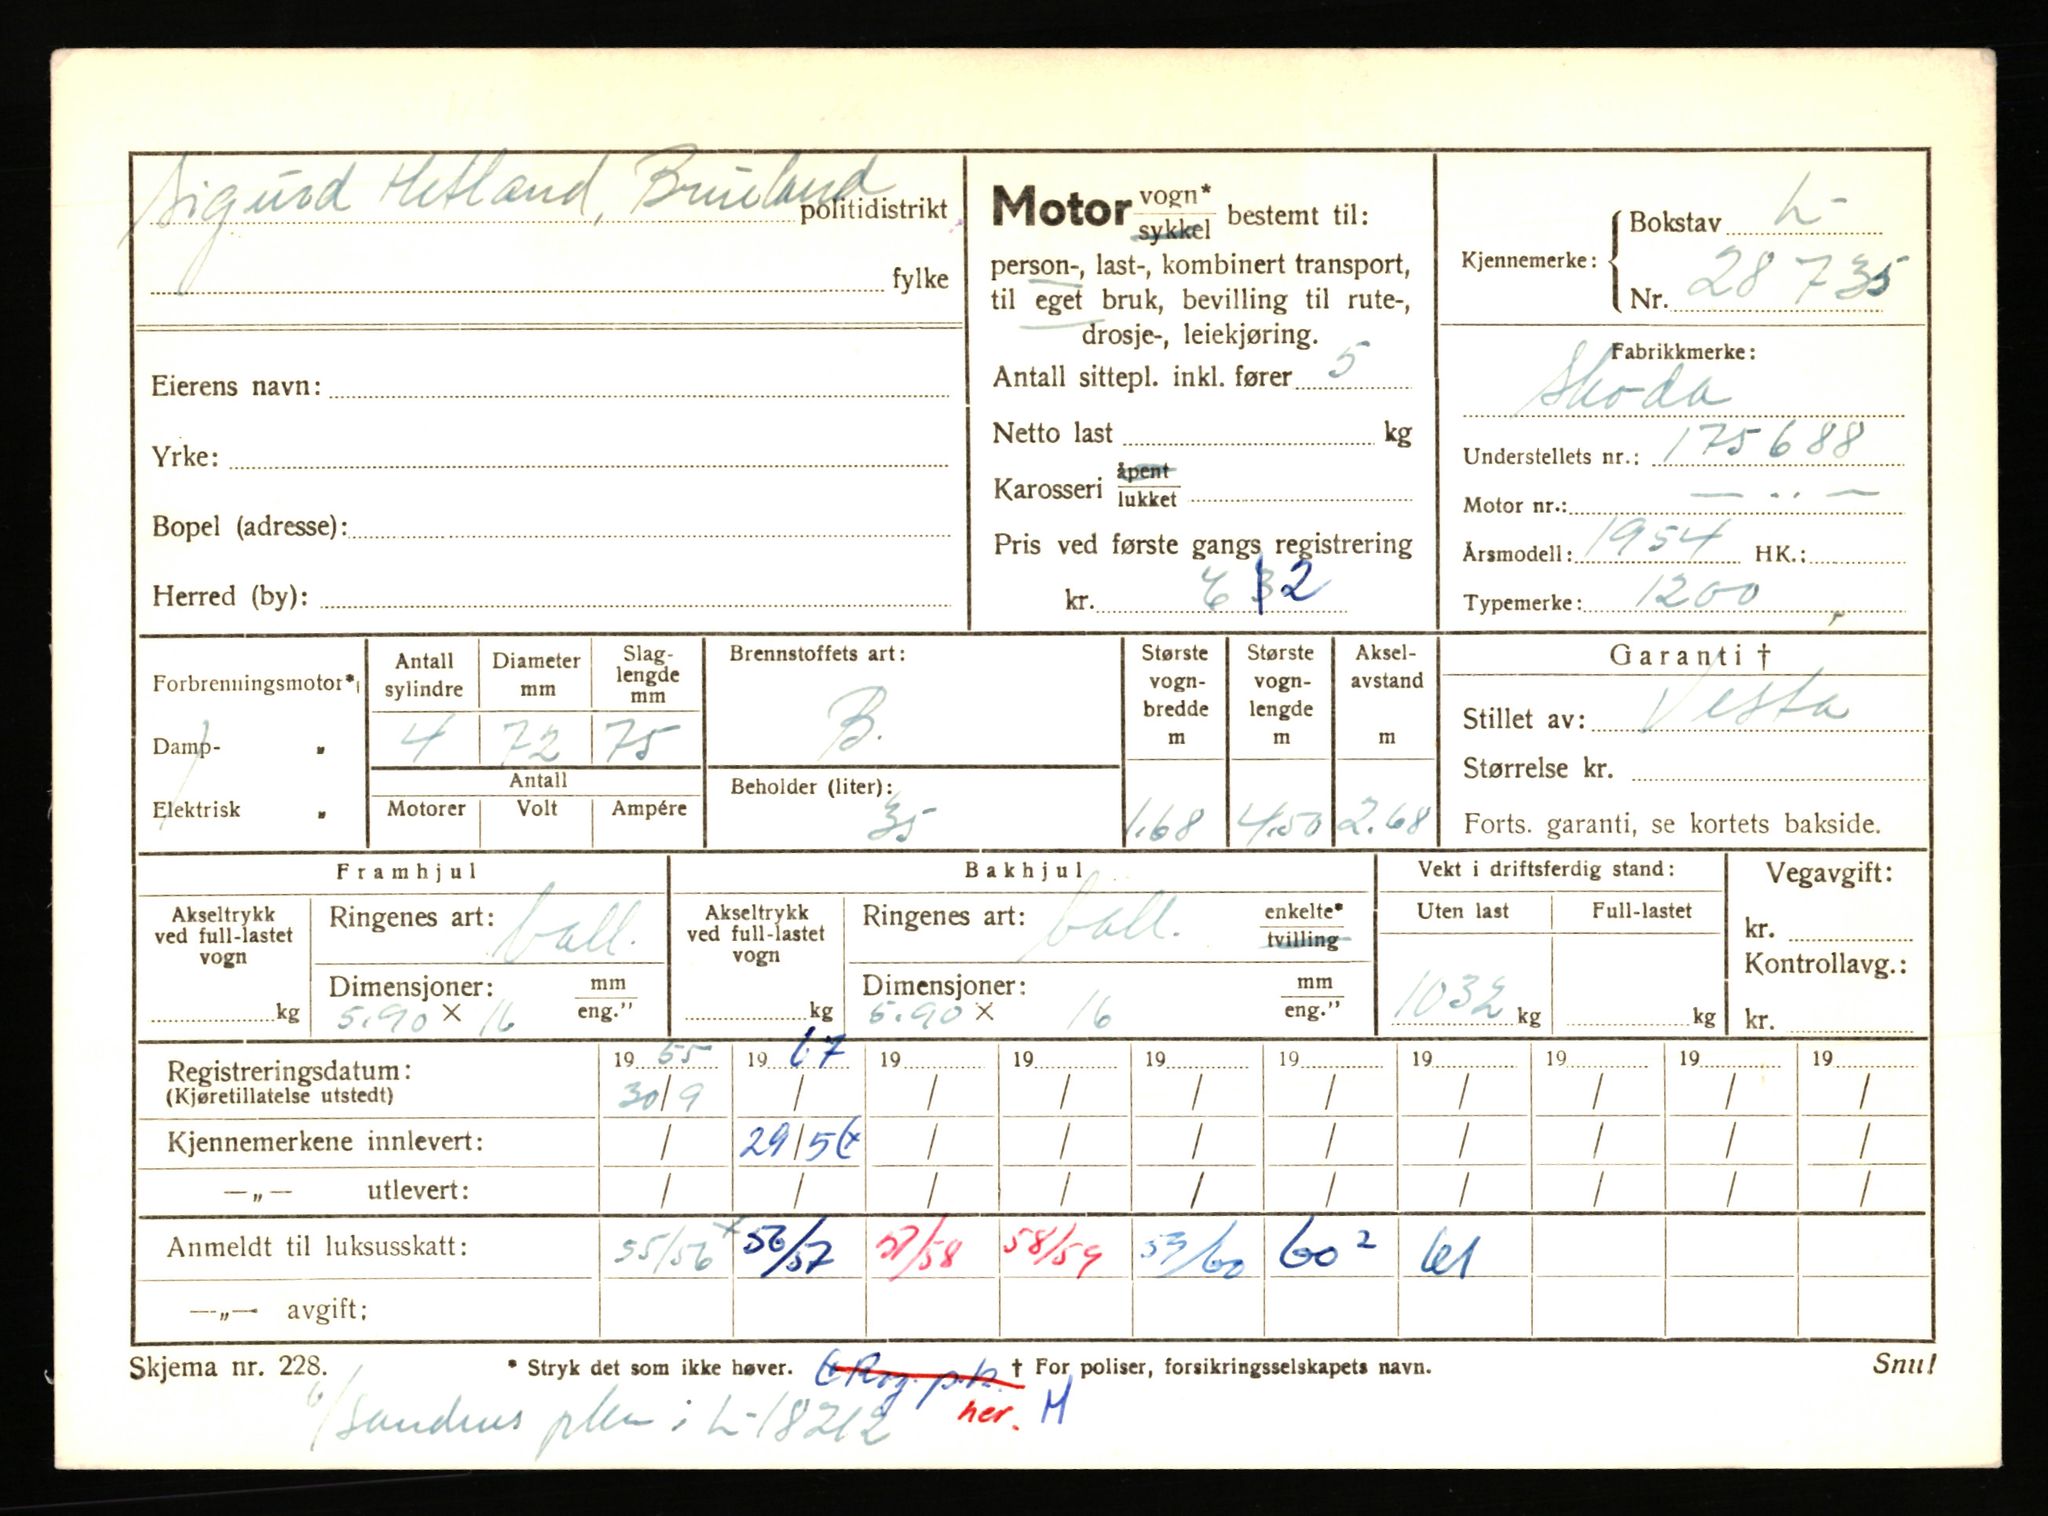 Sigurd Hetland, Brueland
politidistrikt
fylke
Eierens navn:
Yrke:
Bopel (adresse):
Herred (by):
Motor vogn* sykkel bestemt til:
person-, last-, kombinert transport,
til eget bruk, bevilling til rute-,
drosje-, leiekjøring.
Antall sittepl. inkl. fører 5
Netto last kg
Karosseri åpent lukket
Pris ved første gangs registrering
kr.
Kjennemerke: Bokstav L-
Nr. 28735
Fabrikkmerke:
Skoda
Understellets nr.: 175688
Motor nr.: — ·· —
Årsmodell: 1954 HK.:
Typemerke: 1200
Forbrenningsmotor*
Damp- „
Elektrisk „
Antall sylindre
4
Diameter mm
72
Slag-lengde mm
75
Antall
Motorer Volt Ampére
Brennstoffets art:
B.
Beholder (liter):
35
Største vogn-bredde m
1.68
Største vogn-lengde m
4.50
Aksel-avstand m
2.68
Garanti †
Stillet av: Vesta
Størrelse kr.
Forts. garanti, se kortets bakside.
Framhjul
Akseltrykk
ved full-lastet
vogn
kg
Ringenes art: ball.
Dimensjoner: mm
5.90 × 16 eng."
Bakhjul
Akseltrykk
ved full-lastet
vogn
kg
Ringenes art: ball. enkelte* tvilling
Dimensjoner: mm
5.90 × 16 eng."
Vekt i driftsferdig stand:
Uten last Full-lastet
1032 kg kg
Vegavgift:
kr.
Kontrollavg.:
kr.
Registreringsdatum: 19 55 19 67 19 19 19 19 19 19 19 19
(Kjøretillatelse utstedt) 30/9 / / / / / / / / /
Kjennemerkene innlevert: / 29/5 (x / / / / / / / /
—„— utlevert: / / / / / / / / / /
Anmeldt til luksusskatt: 55/56 x 56/57 57/58 58/59 59/60 60² 61
—„— avgift:
Skjema nr. 228. * Stryk det som ikke høver. (x Rog. p.k. † For poliser, forsikringsselskapets navn. Snu!
her. M
i L-18212